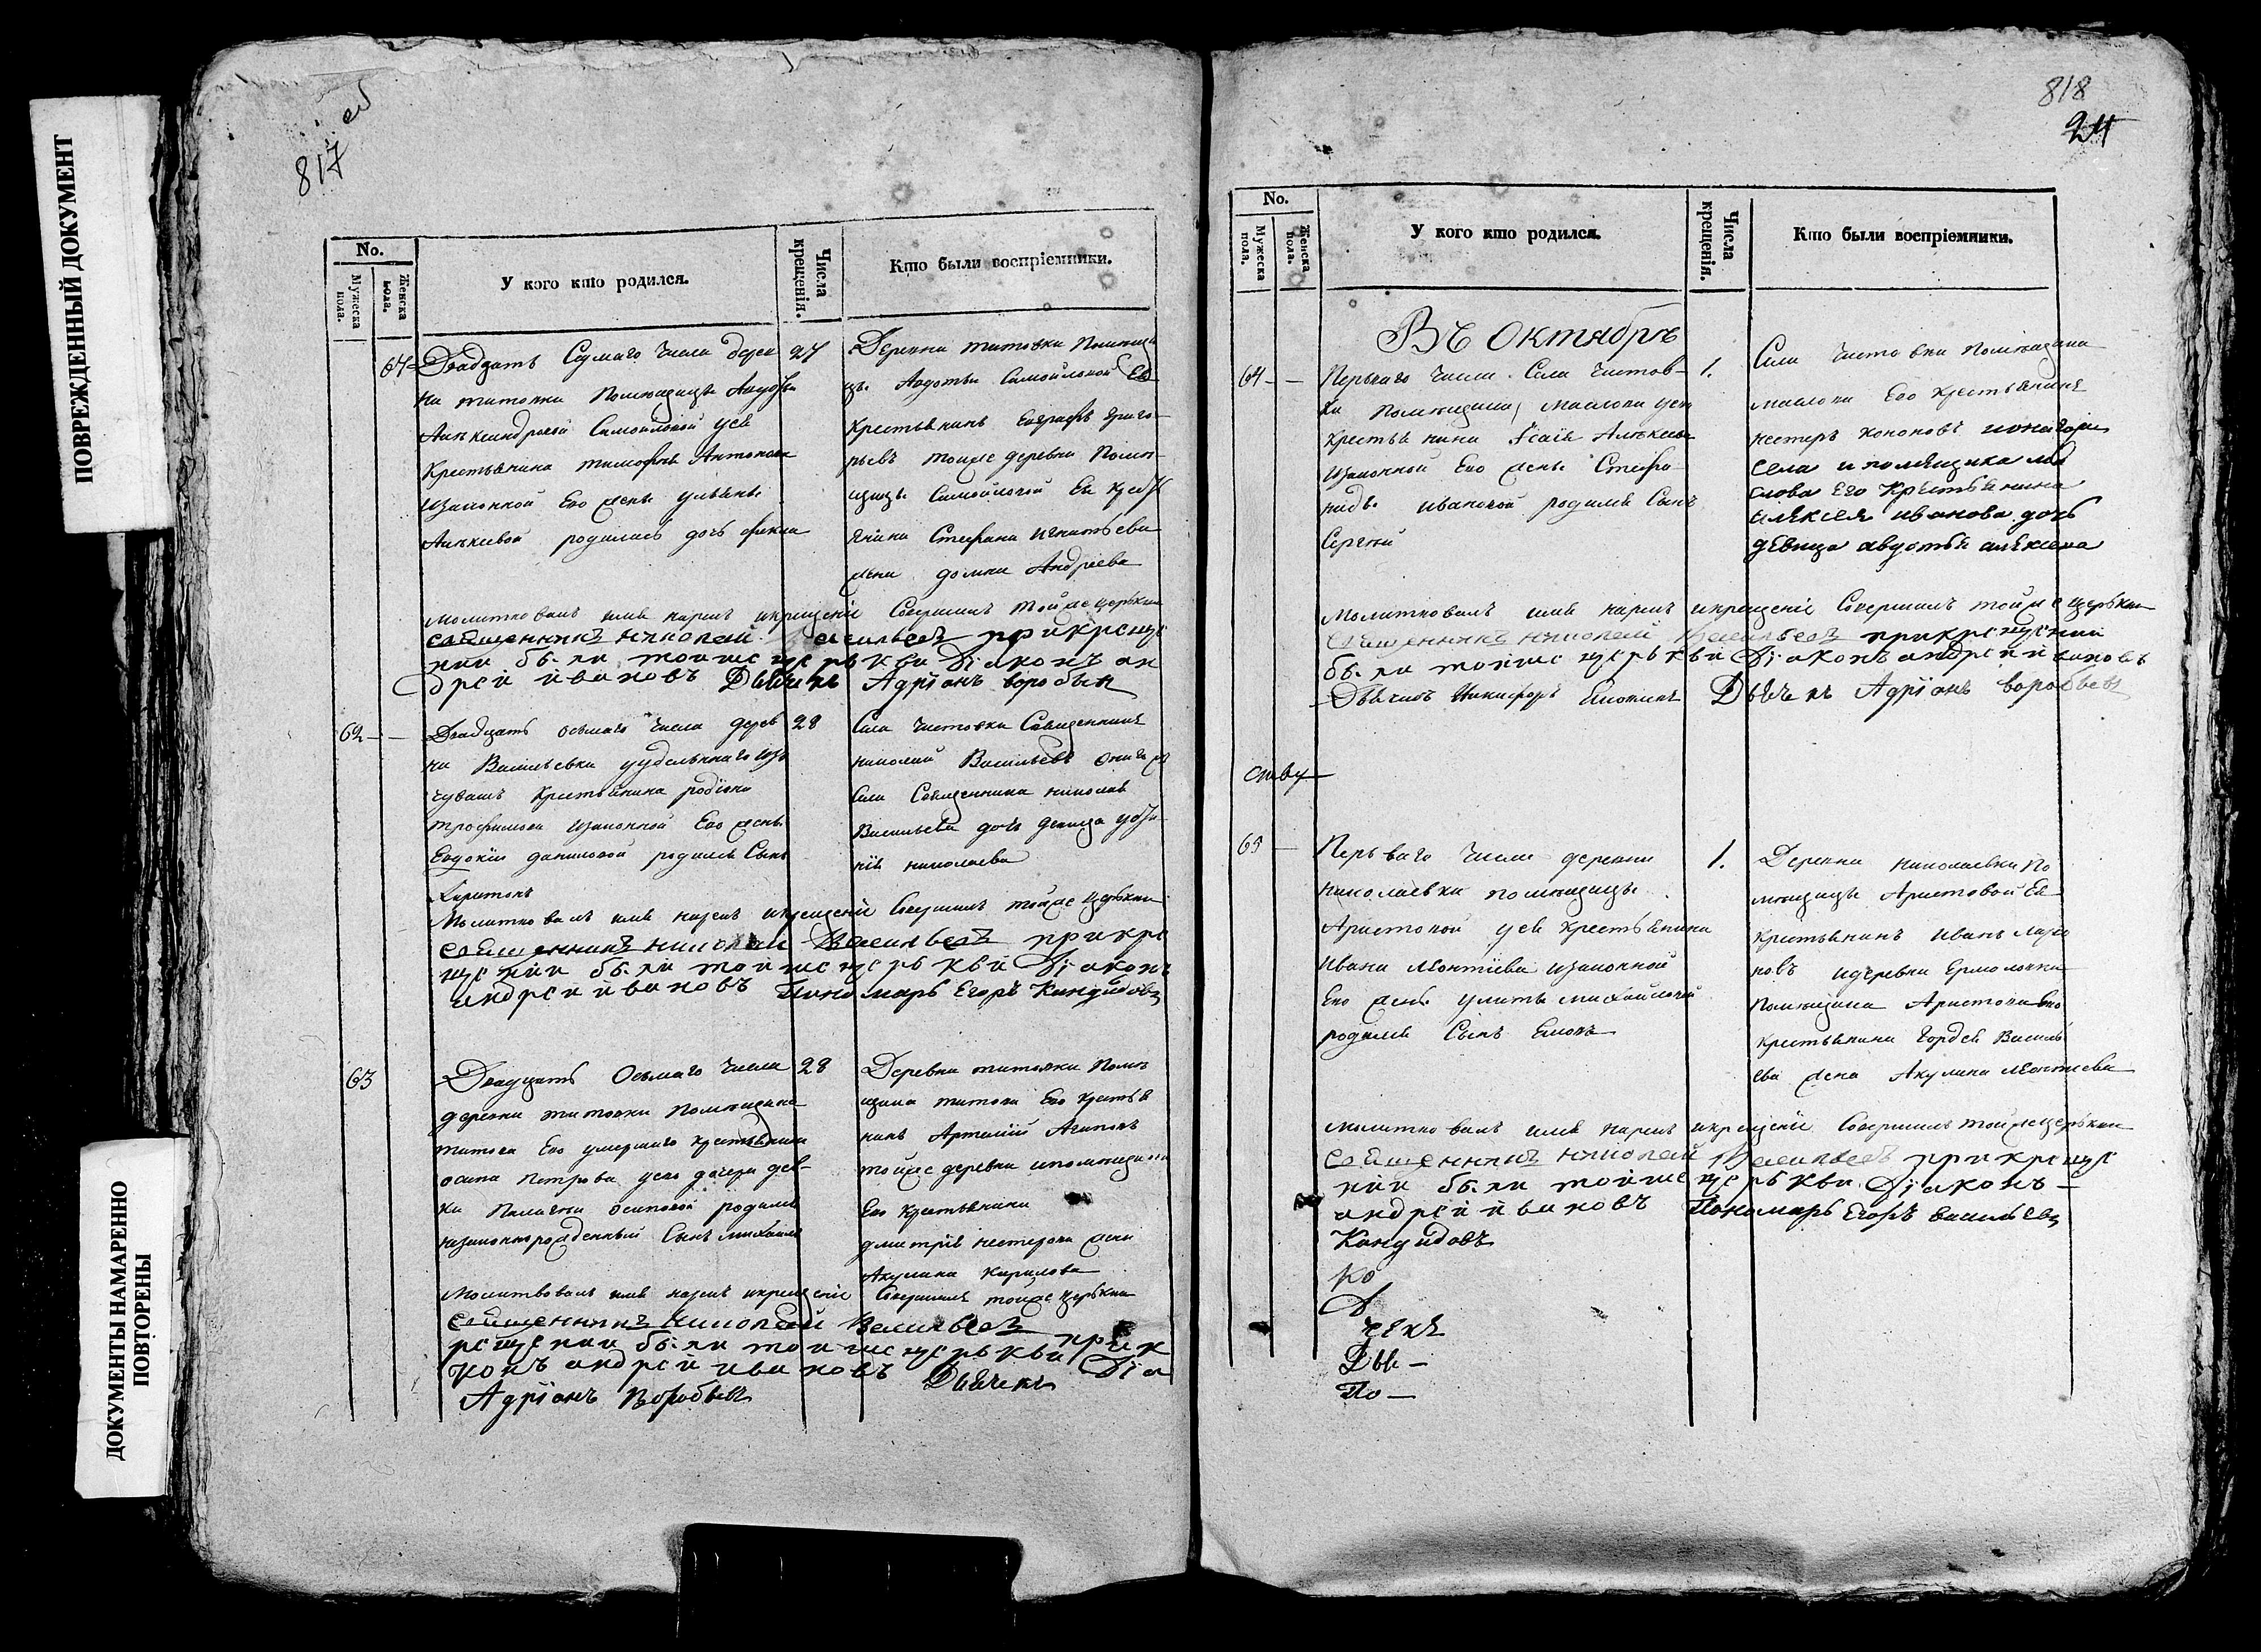 ПОВРЕЖДЕННЫЙ ДОКУМЕНТ
ДОКУМЕНТЫ НАМАРЕННО
ПОВТОРЕНЫ
817
No.
Мужеска пола.
Женска пола.
У кого кто родился.
Числа крещенія.
Кто были воспріемники.
67
Двадцать Седмаго числа дерев
ни титовки Помѣщицы Авдотьи
Алѣксандровой Самойловой уея
Крестьянина тимофея Антонова
Изаконной Его жены ульяны
Алѣксѣевой родилась дочь фекла
27
Деревни титовки Помѣщи
цы Авдотьи Самойловой Ея
крестьянинъ Евграфъ григо
рьевъ тойже деревни Помѣ
щицы Самойловой Ея крестья
янина Стефана игнатьева
жена домна Андреева
Молитвовалъ имя нарѣкъ икрещеніе Совершилъ тойже церкви
священникъ николай Васильевъ прикреще
нии были тойже церькви Діаконъ ан
дрей ивановъ Дьячекъ Адріанъ воробьев
62
Двадцать осьмаго числа дерев
ни Васильевки уудельнаго изъ
чувашъ Крестьянина родіона
трофимова изаконной Его жены
Евдокіи даниловой родился Сынъ
Харитонъ
28
Села Чистовки Священникъ
николай Васильевъ онагожъ
Села Священника николая
Васильева дочь девица
николаева
Молитвовалъ имя нарекъ икрещеніе Совершилъ тойже церькви
священникъ николай Васильевъ прикре
щении были тойже церькви Діаконъ
андрей ивановъ Пономарь Егоръ Кандидовъ
63
Двадцать Осьмаго числа
деревни титовки помѣщика
титова Его умершаго крестьянина
осипа Петрова уего дочери дев
ки Пелагеи осиповой родился
незаконнорожденный Сынъ михаилъ
28
Деревни титовки Помѣ
щика титова Его крестья
нинъ Артемій Агаповъ
тойже деревни ипомѣщика
Его крестьянина
дмитрія нестерова жена
Акулина Кирилова
Молитвовалъ имя нарекъ икрещеніе Совершилъ тойже церькви
священникъ Николай Васильевъ прик
рещении были тойже церькви Діа
конъ андрей ивановъ Дьячекъ
Адріанъ Воробьев
818
24
No.
Мужеска пола.
Женска пола.
У кого кто родился.
Числа крещенія.
Кто были воспріемники.
Въ Октябрѣ
64
Перьваго числа Села чистов
ки Помѣщика Маслова уего
крестьянина Ісаія Алѣксѣева
Изаконной Его жены Стефа
ниды ивановой родился Сынъ
Сергѣй
1.
Села чистовки помѣщика
маслова Его крестьянинъ
нестеръ кононовъ
села и помѣщика ма
слова Его Крестьянина
алѣксея иванова дочь
девица авдотья алексева
Молитвовалъ имя нарекъ икрещеніе Совершилъ тойже церькви
священникъ николай Васильевъ прикрещении
были тойже церькви Діаконъ андрей ивановъ
Дьячекъ Адріанъ Воробьев
65
Перьваго числа деревни
николаевки помѣщицы
Аристовой уея крестьянина
Ивана леонтіева изаконной
Его жены улиты михайловой
родился Сынъ
1.
Деревни николаевки По
мѣщицы Аристовой Ея
крестьянинъ иванъ
новъ идеревни Ермоловки
помѣщика Аристова Его
крестьянина гордея Василь
ева жена Акулина леонтиева
Молитвовалъ имя нарекъ икрещеніе Совершилъ тойже церькви
священникъ николай Васильевъ прикреще
нии были тойже церькви Діаконъ
андрей ивановъ Пономарь Егоръ васильевъ
Кандидовъ
Ко
Д
чекъ
Дья
По